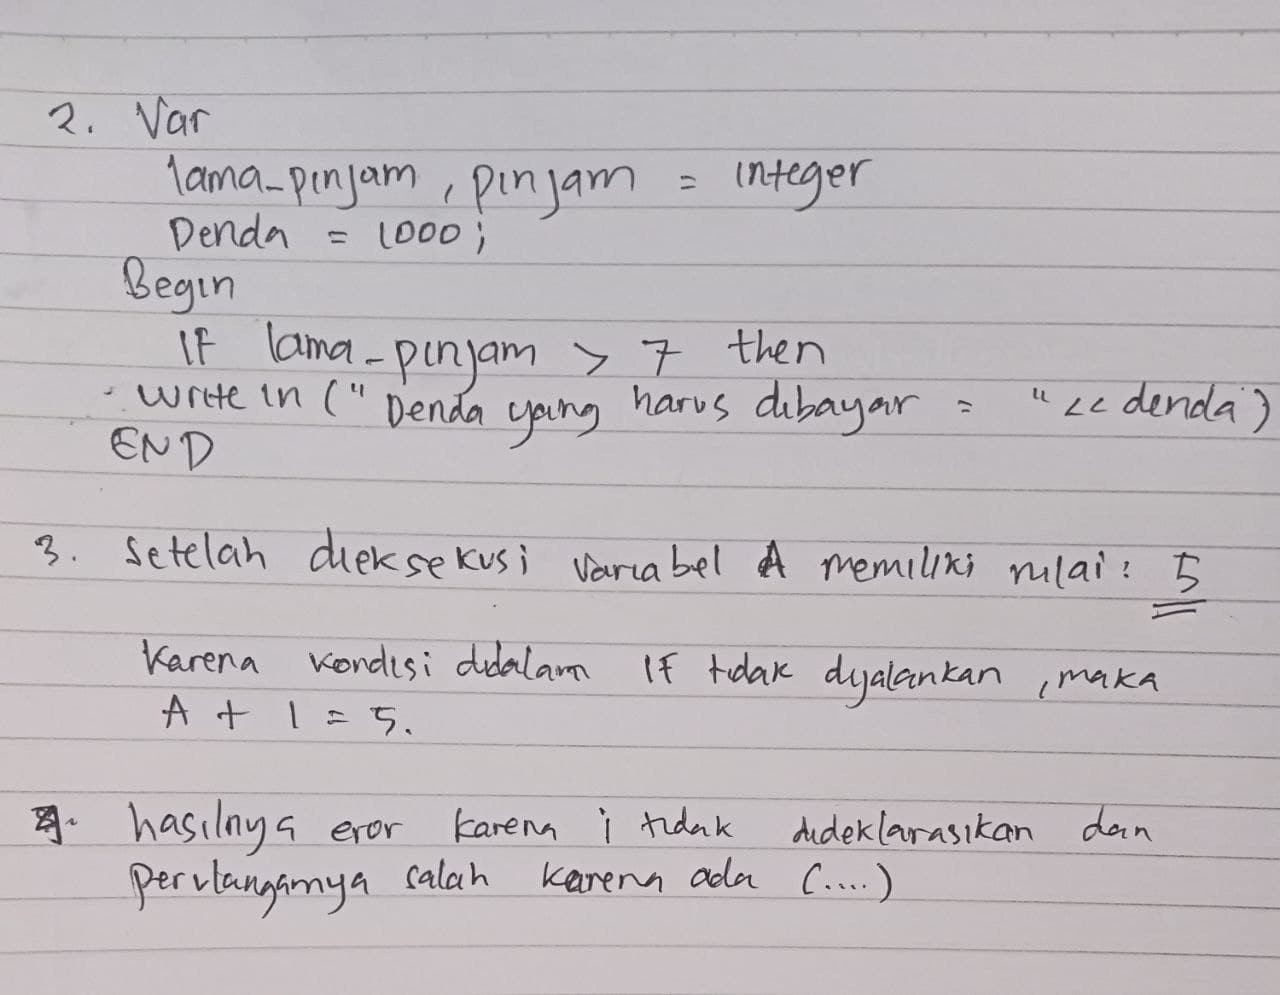 2. Var
lama_pinjam, pinjam = integer
Denda = 1000;
Begin
IF lama_pinjam > 7 then
write in (" Denda yang harus dibayar = " << denda)
END
3. Setelah dieksekusi variabel A memiliki nilai : 5
Karena kondisi didalam IF tidak dijalankan, maka
A + 1 = 5.
hasilnya eror karena i tidak dideklarasikan dan
perulangannya salah karena ada (....)